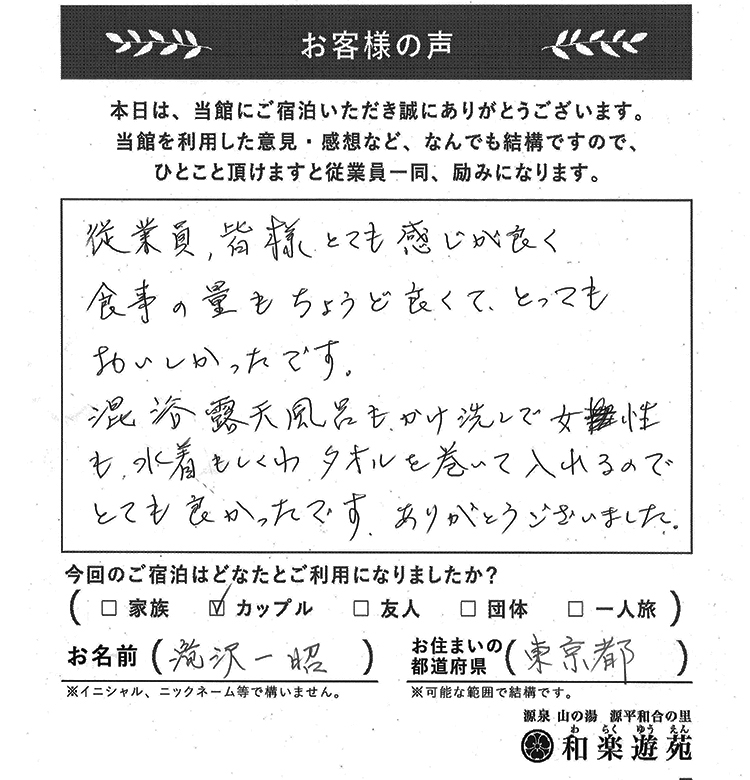 お客様の声
本日は、当館にご宿泊いただき誠にありがとうございます。
当館を利用した意見・感想など、なんでも結構ですので、
ひとこと頂けますと従業員一同、励みになります。
従業員,皆様とても感じが良く
食事の量もちょうど良くて、とっても
おいしかったです。
混浴露天風呂も、かけ洗しで女性
も、水着もしくわタオルを巻いて入れるので
とても良かったです、ありがとうございました。
今回のご宿泊はどなたとご利用になりましたか?
( □ 家族 ☑ カップル □ 友人 □ 団体 □ 一人旅 )
お名前 ( 滝沢一昭 )
※イニシャル、ニックネーム等で構いません。
お住まいの都道府県 ( 東京都 )
※可能な範囲で結構です。
源泉 山の湯 源平和合の里
わ らく ゆう えん
和楽遊苑